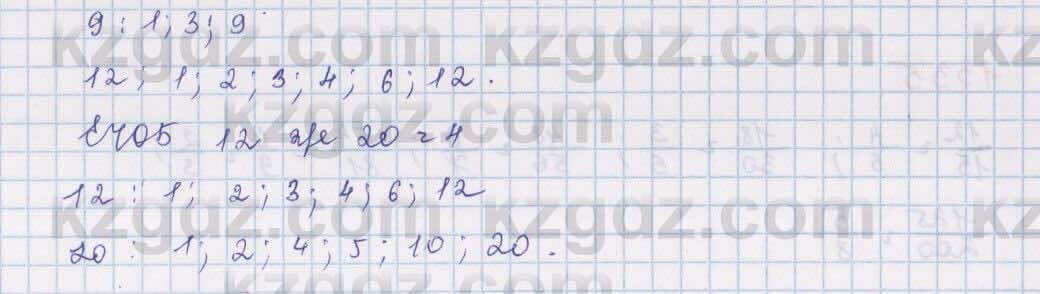 9 : 1; 3; 9
12 : 1; 2; 3; 4; 6; 12.
ЕҮОБ 12 және 20 = 4
12 : 1; 2; 3; 4; 6; 12
20 : 1; 2; 4; 5; 10; 20.
kzgdz.com
kzgdz.com
kzgdz.com